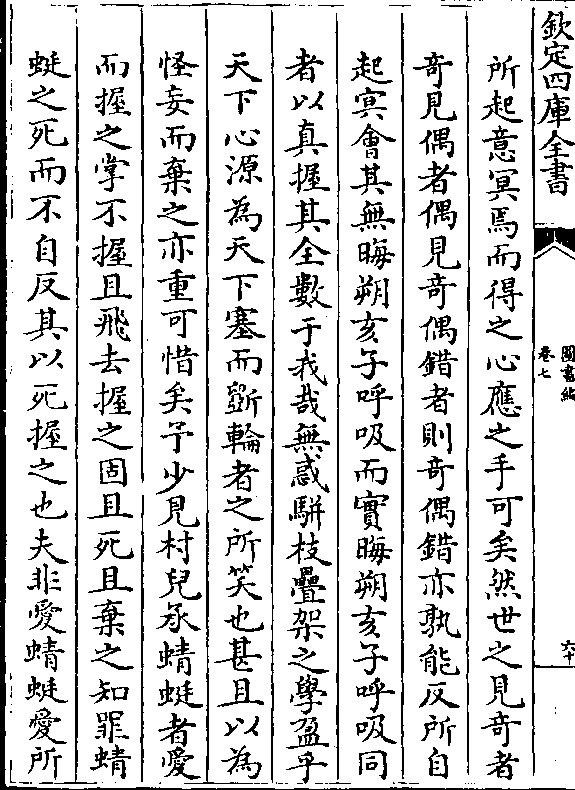 欽定四庫全書
圖書編
卷七
六十
所起意冥焉而得之心應之手可矣然世之見奇者
奇見偶者偶見奇偶錯者則奇偶錯亦孰能反所自
起㝠會其無晦朔亥子呼吸而實晦朔亥子呼吸同
者以真握其全數于我哉無惑駢枝疊架之學盈乎
天下心源為天下塞而斵輪者之所笑也甚且以為
怪妄而棄之亦重可惜矣予少見村兒承蜻蜓者愛
而握之掌不握且飛去握之固且死且棄之知罪蜻
蜓之死而不自反其以死握之也夫非愛蜻蜓愛所